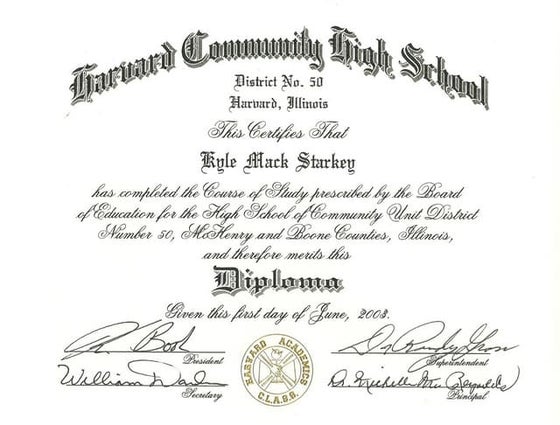 Harvard Community High School
District No. 50
Harvard, Illinois
This Certifies That
Kyle Mack Starkey
has completed the Course of Study prescribed by the Board
of Education for the High School of Community Unit District
Number 50, McHenry and Boone Counties, Illinois,
and therefore merits this
Diploma
Given this first day of June, 2003.
President
Superintendent
William
Secretary
Dr. Michelle
Principal
HARVARD ACADEMICS
C.L.A.S.S.